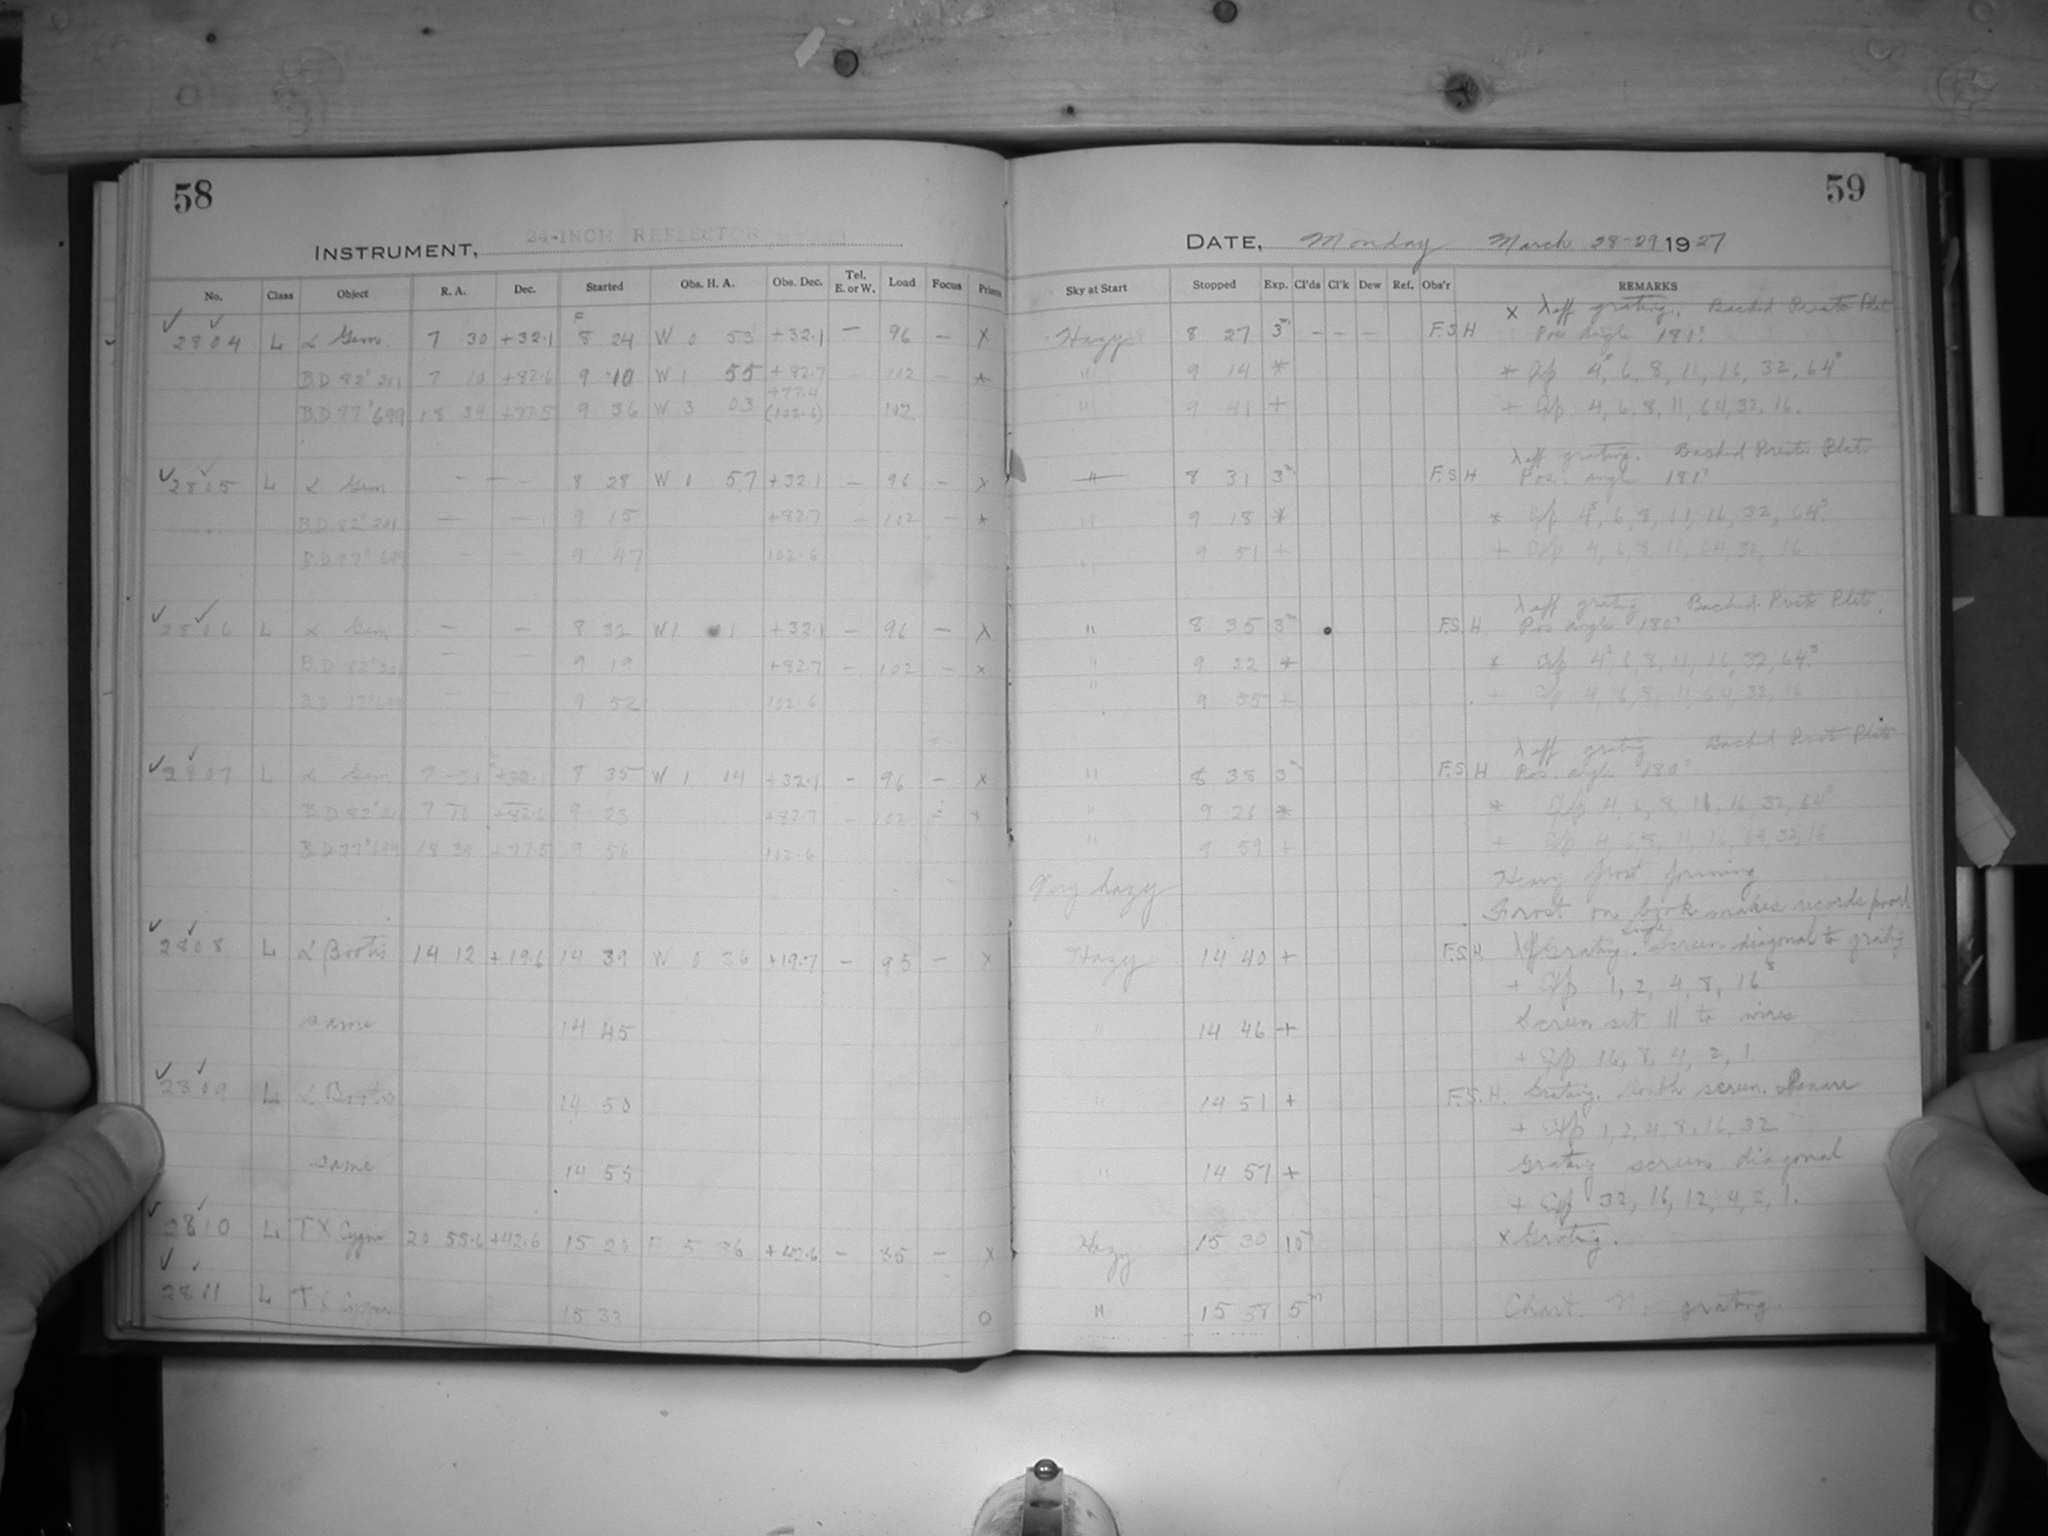 58
INSTRUMENT, 24-INCH REFLECTOR
No. Class Object R. A. Dec. Started Obs. H. A. Obs. Dec. Tel. E. or W. Load Focus Prism
2804 L α Gem. 7 30 +32.1 8 24 W 0 53 +32.1 — 96 — X
BD 82° 201 7 10 +82.6 9 10 W 1 55 +82.7 — 102 — *
+77.4
BD 77° 699 18 39 +77.5 9 36 W 3 03 (102.6) 102
2805 L α Gem — — 8 28 W 0 57 +32.1 — 96 — X
BD 82° 201 — — 9 15 +82.7 — 102 — *
BD 77° 699 — — 9 47 102.6
2806 L α Gem — — 8 32 W 1 1 +32.1 — 96 — X
BD 82° 201 — — 9 19 +82.7 — 102 — x
BD 77° 699 9 52 102.6
2807 L α Gem 8 35 W 1 14 +32.1 — 96 — x
BD 82° 201 7 10 +82.6 9 23 +82.7 — 102
BD 77° 699 18 39 +77.5 9 56 102.6
2808 L α Bootis 14 12 +19.6 14 39 W 0 36 +19.7 — 95 — X
same 14 45
2809 L α Bootis 14 50
same 14 55
2810 L TX Cygni 20 55.6 +42.6 15 20 E 5 36 +42.6 — 85 — X
2811 L TX Cygni 15 33 O
59
DATE, Monday March 28-29 1927
Sky at Start Stopped Exp. Cl'ds Cl'k Dew Ref. Obs'r REMARKS
x λeff grating. Backed Presto Plate
Hazy 8 27 3m — — — F.S H Pos angle 180°
" 9 14 * * Exp 4s, 6, 8, 11, 16, 32, 64s
" 9 41 + + Exp 4, 6, 8, 11, 64, 32, 16.
λeff grating. Backed Presto Plate
" 8 31 3m F.S.H Pos. angle 181°
" 9 18 * * Exp 4s, 6, 8, 11, 16, 32, 64s
9 51 + + Exp 4, 6, 8, 11, 64, 32, 16
λeff grating Backed Presto Plate.
" 8 35 3m F.S. H Pos angle 180°
" 9 22 * * Exp 4s, 6, 8, 11, 16, 32, 64s
" 9 55 + + Exp 4, 6, 8, 11 64, 32, 16
λeff grating Backed Presto Plate
" 8 38 3m F.S. H Pos. angle 180°
" 9 26 * * Exp 4, 6, 8, 11, 16, 32, 64s
" 9 59 + + Exp 4, 6, 8, 11, 16, 64, 32, 16
Very hazy Heavy frost forming
Forost on book makes records poor!
Single
Hazy 14 40 + F.S.H. λeff Grating. Screen diagonal to grating
+ Exp 1, 2, 4, 8, 16s
" 14 46 + Screen set 11 to wires
+ Exp 16, 8, 4, 2, 1
" 14 51 + F.S.H. Grating. Double screen. Square
+ Exp 1, 2, 4, 8, 16, 32
" 14 57 + Grating screen diagonal
+ Exp 32, 16, 12, 4, 2, 1.
Hazy 15 30 10 x Grating.
" 15 38 5m Chart. No grating.